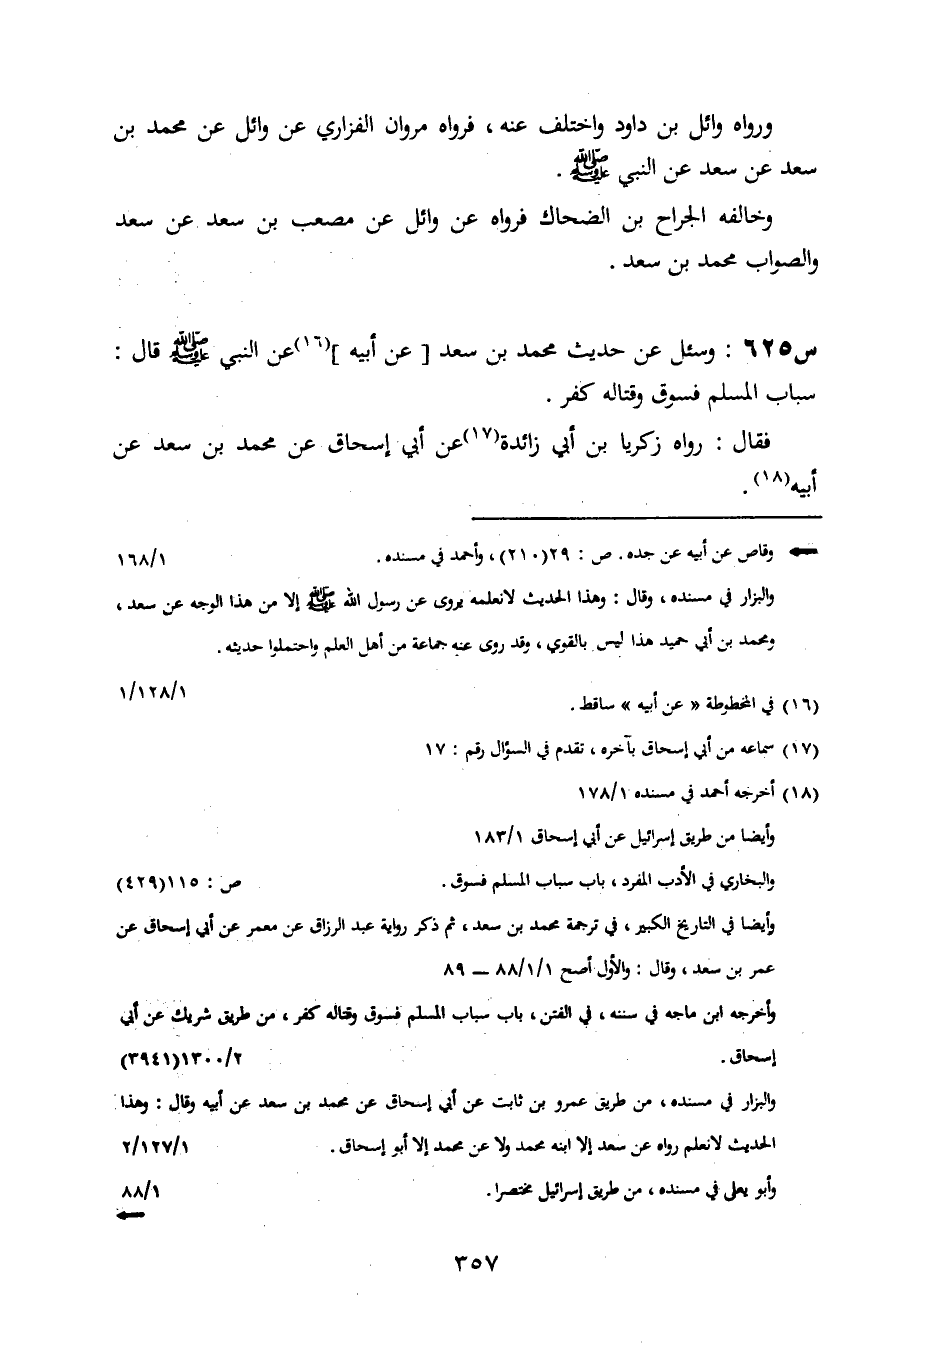 ورواه وائل بن داود واختلف عنه ، فرواه مروان الفزاري عن وائل عن محمد بن
سعد عن سعد عن النبي ﷺ .
وخالفه الجراح بن الضحاك فرواه عن وائل عن مصعب بن سعد عن سعد
والصواب محمد بن سعد .
س٦٢٥ : وسئل عن حديث محمد بن سعد [ عن أبيه ](١٦)عن النبي ﷺ قال :
سباب المسلم فسوق وقتاله كفر .
فقال : رواه زكريا بن أبي زائدة(١٧)عن أبي إسحاق عن محمد بن سعد عن
أبيه(١٨) .
وقاص عن أبيه عن جده . ص : ٢٩(٢١٠) ، وأحمد في مسنده . ١٦٨/١
والبزار في مسنده ، وقال : وهذا الحديث لانعلمه يروى عن رسول الله ﷺ إلا من هذا الوجه عن سعد ،
ومحمد بن أبي حميد هذا ليس بالقوي ، وقد روى عنه جماعة من أهل العلم واحتملوا حديثه .
١/١٢٨/١
(١٦) في المخطوطة « عن أبيه » ساقط .
(١٧) سماعه من أبي إسحاق بآخره ، تقدم في السؤال رقم : ١٧
(١٨) أخرجه أحمد في مسنده ١٧٨/١
وأيضا من طريق إسرائيل عن أبي إسحاق ١٨٣/١
والبخاري في الأدب المفرد ، باب سباب المسلم فسوق . ص : ١١٥(٤٢٩)
وأيضا في التاريخ الكبير ، في ترجمة محمد بن سعد ، ثم ذكر رواية عبد الرزاق عن معمر عن أبي إسحاق عن
عمر بن سعد ، وقال : والأول أصح ٨٨/١/١ ــ ٨٩
وأخرجه ابن ماجه في سننه ، في الفتن ، باب سباب المسلم فسوق وقتاله كفر ، من طريق شريك عن أبي
إسحاق . ١٣٠٠/٢(٣٩٤١)
والبزار في مسنده ، من طريق عمرو بن ثابت عن أبي إسحاق عن محمد بن سعد عن أبيه وقال : وهذا
الحديث لانعلم رواه عن سعد إلا ابنه محمد ولا عن محمد إلا أبو إسحاق . ٢/١٢٧/١
وأبو يعلى في مسنده ، من طريق إسرائيل مختصرا . ٨٨/١
٣٥٧